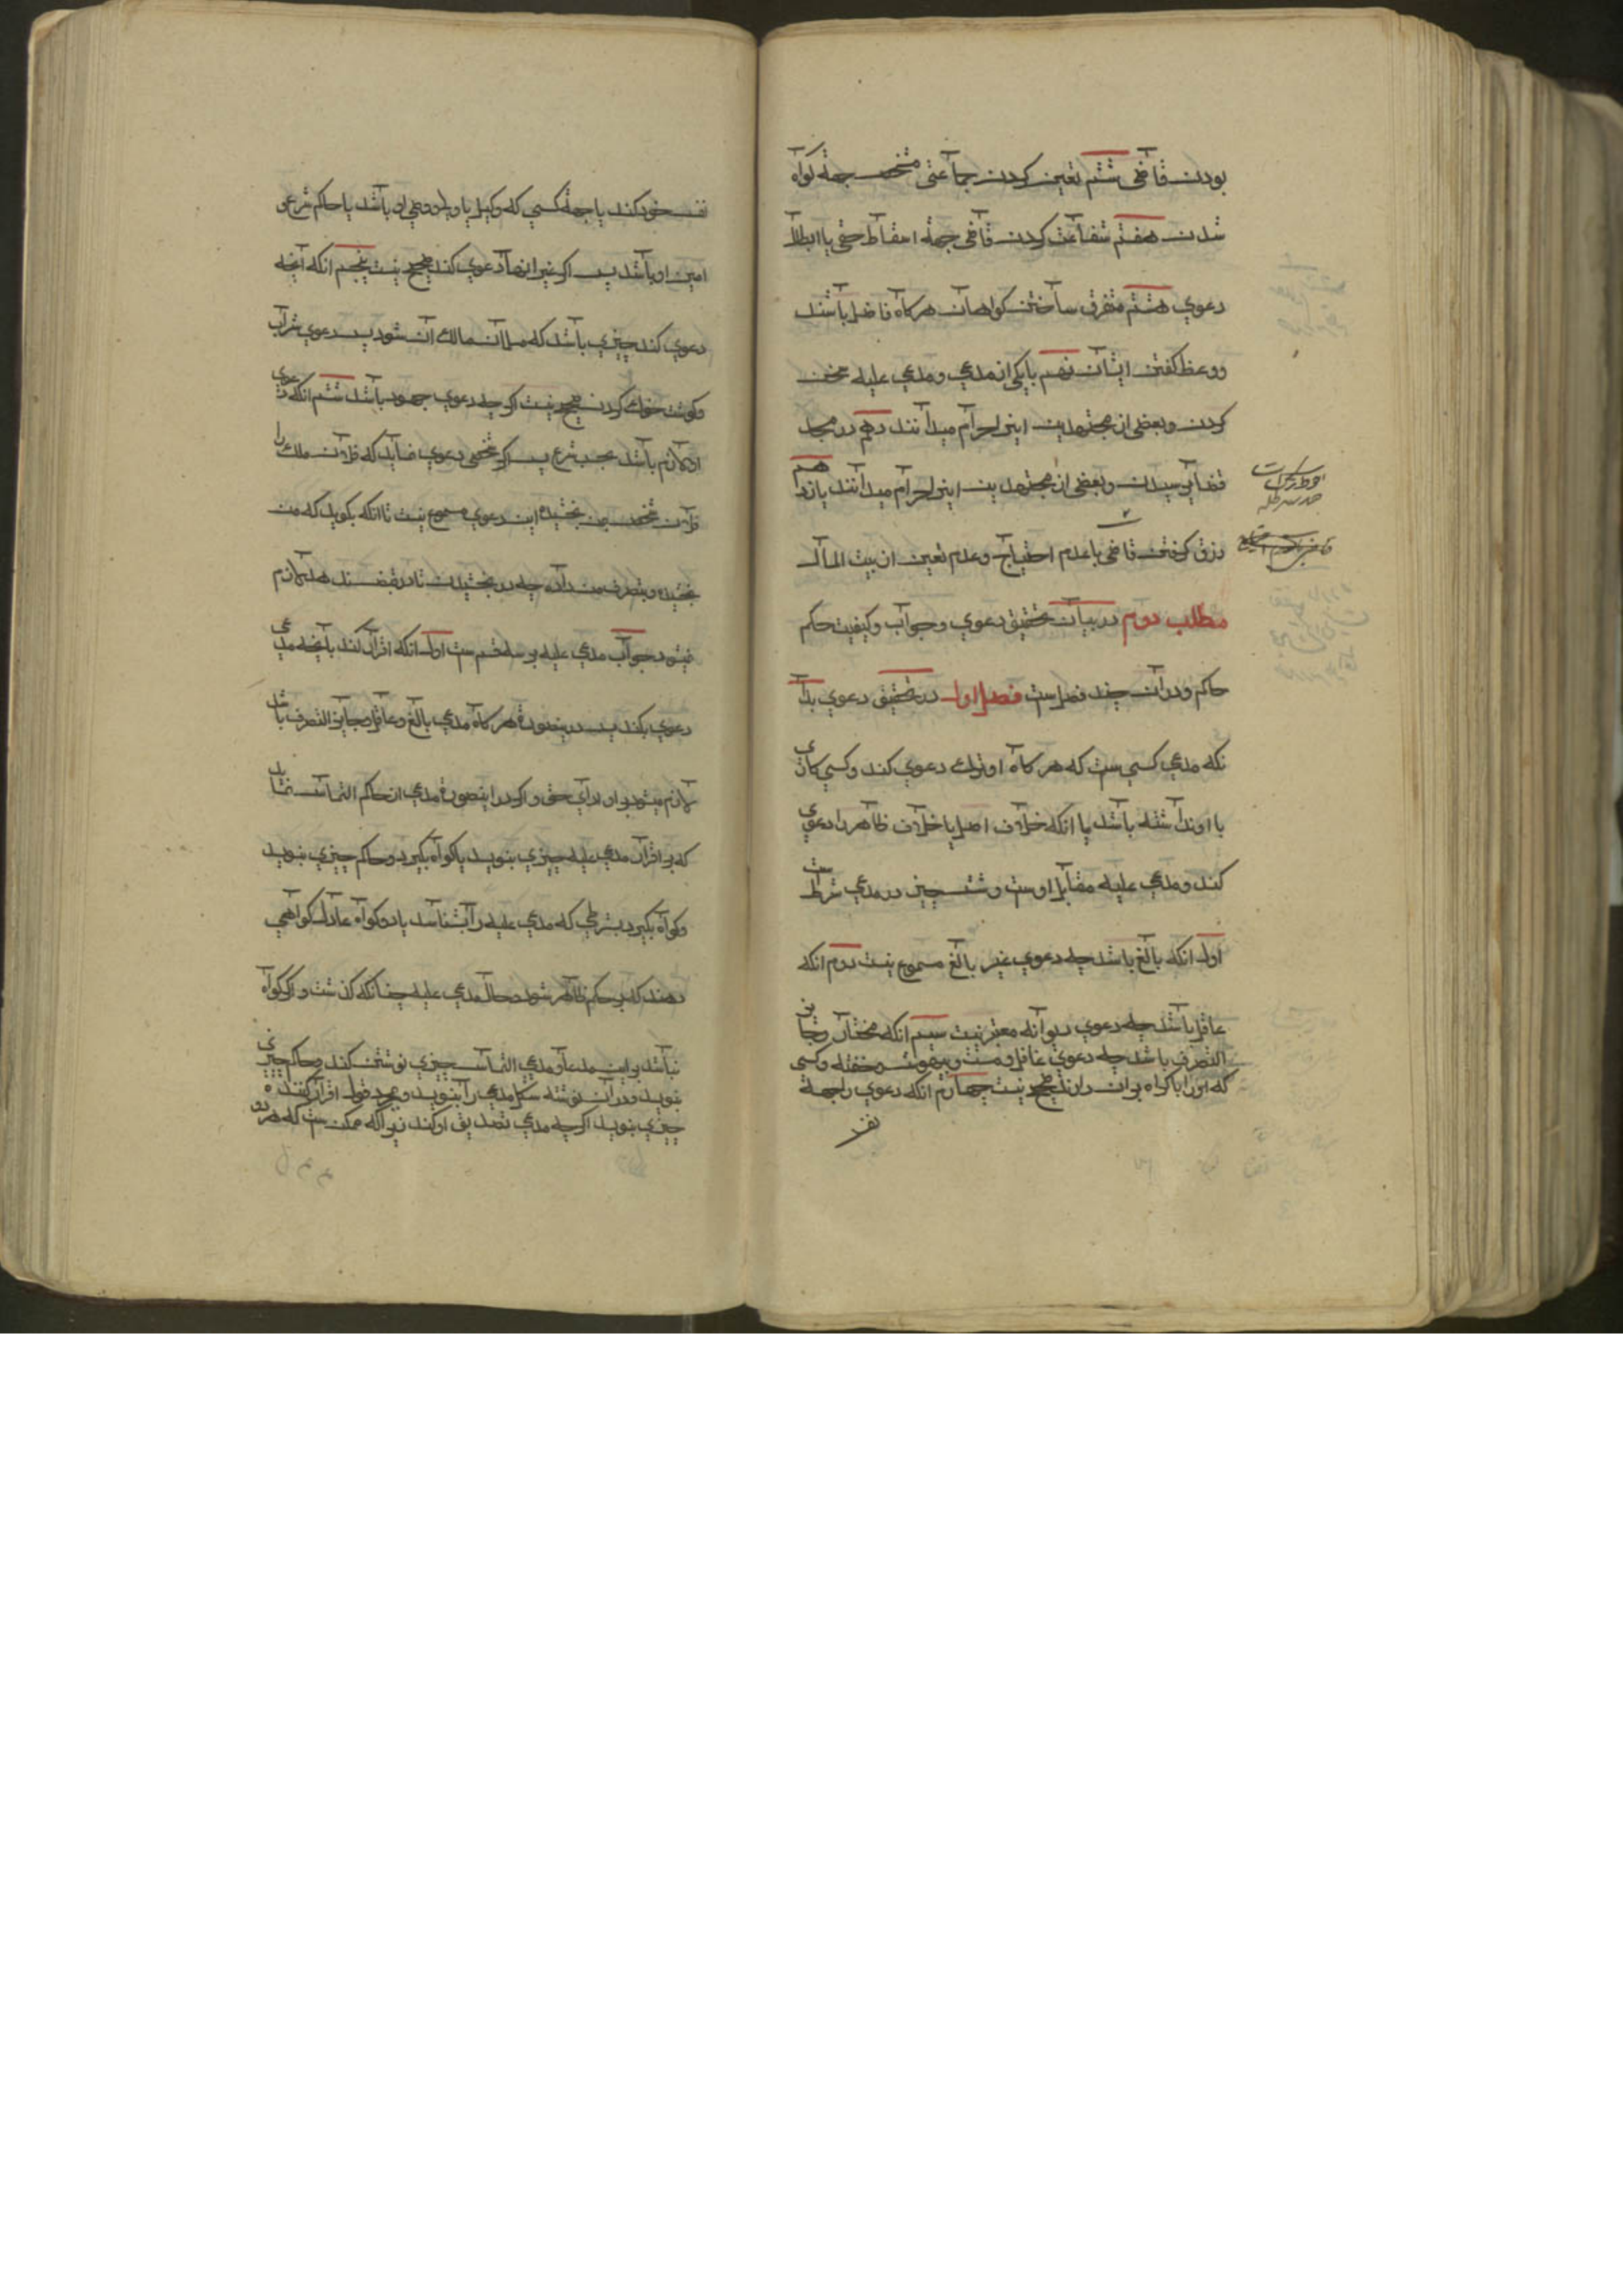 بودن قاضی ششم تعین کردن جماعتی مشخص جهة کواه
شدن هفتم شفاعت کردن قاضی جهة اسقاط حقی یا ابطال
دعوی هشتم متفرق ساختن کواهان هر کاه فاضل باشند
و وعظ کفتن ایشان نهم با یکی از مدعی و مدعی علیه سخن
کردن و بعضی از مجتهدین اینرا حرام میدانند دهم در مجلس
قضا پرسیدن و بعضی از مجتهدین اینرا حرام میدانند یازدهم
رزق کرفتن قاضی با عدم احتیاج و عدم تعین از بیت المال
مطلب دوم در بیان تحقیق دعوی و جواب و کیفیت حکم
حاکم و در آن چند فصل ست فصل اول در تحقیق دعوی بدا
نکه مدعی کسی ست که هر کاه او ترک دعوی کند و کسی کاری
با او نداشته باشد یا انکه خلاف اصل یا خلاف ظاهر را دعوی
کند و مدعی علیه مقابل اوست و شش چیز در مدعی شرط ست
اول انکه بالغ باشد چه دعوی غیر بالغ مسموع نیست دوم انکه
عاقل باشد چه دعوی دیوانه معتبر نیست سیم انکه مختار و جایز
التصرف باشد چه دعوی غافل و مست و بیهوش و خفته و کسی
که او را باکراه بر آن دارند صحیح نیست چهارم انکه دعوی را جهة
نفس
نفس خود کند یا جهة کسی که وکیل یا ولی و وصی او باشد یا حاکم شرع و
امین او باشد پس اکر غیر ازینها دعوی کند صحیح نیست پنجم انکه آنچه
دعوی کند چیزی باشد که مسلمان مالک آن شود پس دعوی شراب
و کوشت خوک کردن صحیح نیست اکرچه دعوی جهود باشد ششم انکه دعوی
او لازم باشد بحسب شرع پس اکر شخصی دعوی نماید که فلان ملک را
فلان شخص بمن بخشیده این دعوی مسموع نیست تا انکه بکوید که من
بخشیده و بتصرف من داده چه در بخشیدن تا در قبض ندهد لازم
نمیشود جواب مدعی علیه بر سه قسم ست اول انکه اقرار کند بآنچه مدعی
دعوی بکند پس درینصورة هر کاه مدعی بالغ و عاقل و جایز التصرف باشد
لازم میشود بر او ادای حق و اکر در اینصورة مدعی از حاکم التماس نماید
که بر اقرار مدعی علیه چیزی بنویسد یا کواه بکیرد و حاکم چیزی بنویسد
و کواه بکیرد بشرطی که مدعی علیه را بشناسد یا دو کواه عادل کواهی
دهند که بر حاکم ظاهر شود حال مدعی علیه چنانکه کذشت و اکر کواه
نباشد بر این مدعا و مدعی التماس چیزی نوشتن کند و حاکم چیزی
بنویسد و در آن نوشته شکل مدعی را بنویسد و بمجرد قول اقرار کننده
چیزی بنویسد اکرچه مدعی تصدیق او کند زیرا که ممکن ست که هر دو